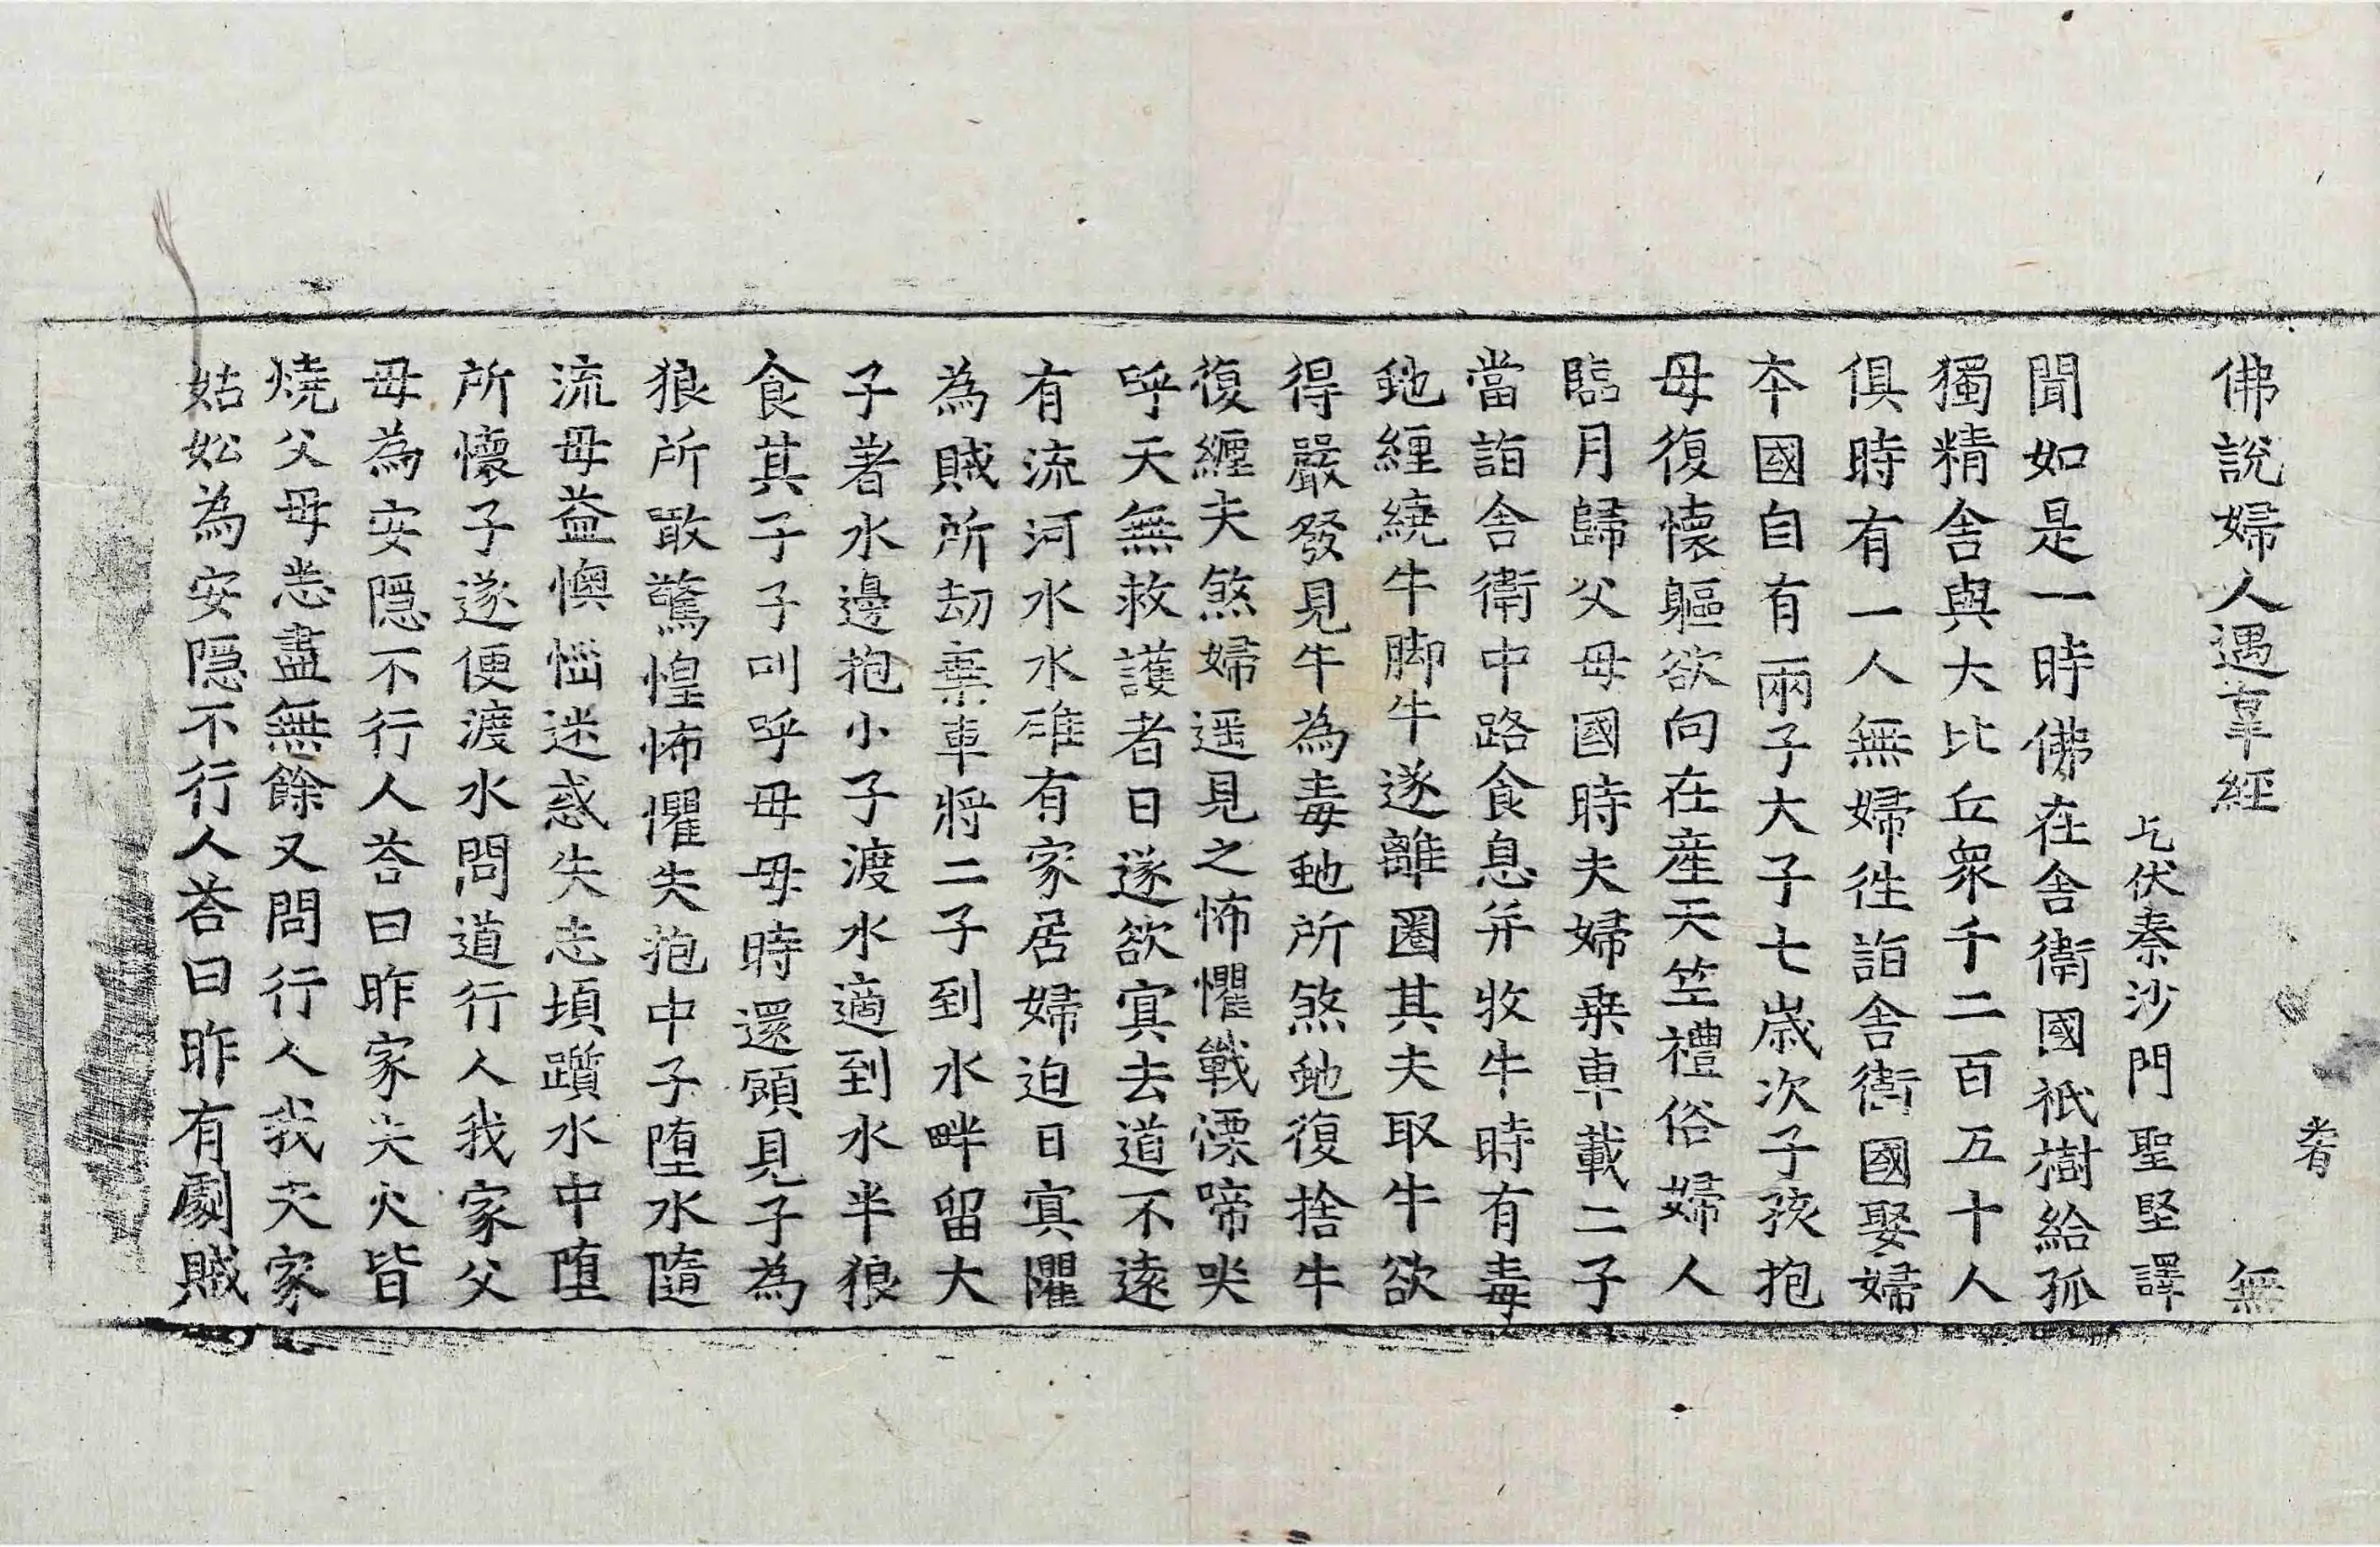 佛說婦人遇辜經 無
乞伏秦沙門聖堅譯
聞如是一時佛在舍衛國祇樹給孤
獨精舍與大比丘衆千二百五十人
俱時有一人無婦徃詣舍衛國娶婦
本國自有兩子大子七歲次子孩抱
母復懷軀欲向在產天竺禮俗婦人
臨月歸父母國時夫婦乗車載二子
當詣舍衛中路食息并牧牛時有毒
虵纏繞牛脚牛遂離圈其夫取牛欲
得嚴發見牛為毒虵所煞虵復捨牛
復纏夫煞婦遥見之怖懼戰慄啼哭
呼天無救護者日遂欲冥去道不遠
有流河水水碓有家居婦迫日冥懼
為賊所劫棄車將二子到水畔留大
子著水邊抱小子渡水適到水半狼
食其子子叫呼母母時還顧見子為
狼所噉驚惶怖懼失抱中子堕水隨
流母益懊惱迷惑失志頃躓水中堕
所懷子遂便渡水問道行人我家父
母為安隱不行人荅曰昨家失火皆
燒父母悉盡無餘又問行人我夫家
姑妐為安隱不行人荅曰昨有劇賊